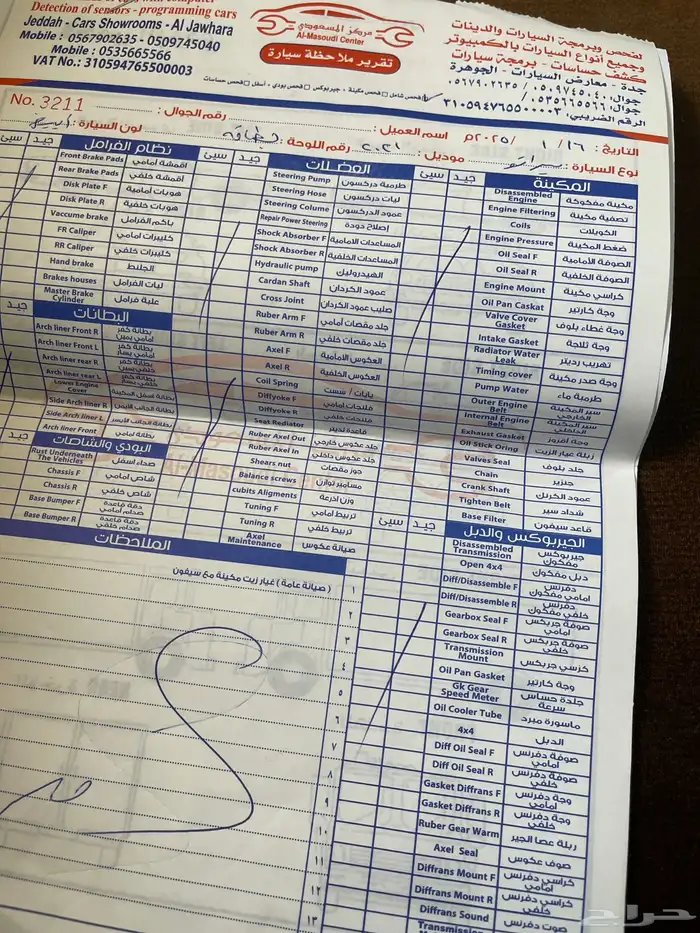 Detection of sensors - programming cars
Jeddah - Cars Showrooms - Al Jawhara
Mobile : 0567902635 - 0509745040
Mobile : 0535665566
VAT No.: 310594765500003
مركز المسعودي
Al-Masoudi Center
تقرير ملاحظة سيارة
لفحص وبرمجة السيارات والدينات
لجميع أنواع السيارات بالكمبيوتر
كشف حساسات - برمجة سيارات
جدة - معارض السيارات - الجوهرة
جوال: ٠٥٠٩٧٤٥٠٤٠ / ٠٥٦٧٩٠٢٦٣٥
جوال: ٠٥٣٥٦٦٥٥٦٦
الرقم الضريبي: ٣١٠٥٩٤٧٦٥٥٠٠٠٠٣
فحص شامل فحص مكينة جيربوكس فحص بودي أسفل فحص حساسات
No. 3211
التاريخ: ١٦ / /٢٠٢٥م اسم العميل: رقم الجوال:
نوع السيارة: موديل: ٢٠٢١ رقم اللوحة: لون السيارة:
المكينة جيد سيئ
Disassembled Engine مكينة مفكوكة
Engine Filtering تصفية مكينة
Coils الكويلات
Engine Pressure ضغط المكينة
Oil Seal F الصوفة الأمامية
Oil Seal R الصوفة الخلفية
Engine Mount كراسي مكينة
Oil Pan Caskat وجة كارتير
Valve Cover Gasket وجة غطاء بلوف
Intake Gasket وجة ثلاجة
Radiator Water Leak تهريب رديتر
Timing cover وجة صدر مكينة
Pump Water طرمبة ماء
Outer Engine Belt سير المكينة الخارجي
Internal Engine Belt سير المكينة الداخلي
Exhaust Gasket
Oil Stick Oring ربلة عيار الزيت
Valves Seal جلد بلوف
Chain جنزير
Crank Shaft عمود الكرنك
Tighten Belt شداد سير
Base Filter قاعد سيفون
العضلات جيد سيئ
Steering Pump طرمبة دركسون
Steering Hose ليات دركسون
Steering Colume عمود الدركسون
Repair Power Steering إصلاح دودة
Shock Absorber F المساعدات الامامية
Shock Absorber R المساعدات الخلفية
Hydraulic pump الهيدروليك
Cardan Shaft عمود الكردان
Cross Joint صليب عمود الكردان
Ruber Arm F جلد مقصات أمامي
Ruber Arm R جلد مقصات خلفي
Axel F العكوس الامامية
Axel R العكوس الخلفية
Coil Spring يايات / سست
Diffyoke F فلنجات أمامي
Diffyoke R فلنجات خلفي
Seat Radiator قاعدة لديتر
Ruber Axel Out جلد عكوس خارجي
Ruber Axel In جلد عكوس داخلي
Shears nut جوز مقصات
Balance screws مسامير توازن
cubits Aligments وزن اذرعة
Tuning F تربيط امامي
Tuning R تربيط خلفي
Axel Maintenance صيانة عكوس
نظام الفرامل جيد سيئ
Front Brake Pads اقمشة امامي
Rear Brake Pads اقمشة خلفي
Disk Plate F هوبات امامية
Disk Plate R هوبات خلفية
Vaccume brake باكم الفرامل
FR Caliper كليبرات امامي
RR Caliper كليبرات خلفي
Hand brake الجلنط
Brakes houses ليات الفرامل
Master Brake Cylinder علبة فرامل
البطانات جيد
Arch liner Front R بطانة كفر امامي يمين
Arch liner Front L بطانة كفر امامي يسار
Arch liner rear R بطانة كفر خلفي يمين
Arch liner rear L بطانة كفر خلفي يسار
Lower Engine Cover بطانة اسفل المكينة
Side Arch liner R بطانة الجانب الأيمن
Side Arch liner L بطانة الجانب الأيسر
Arch liner Front بطانة امامي
البودي والشاصات جيد
Rust Underneath The Vehicles صداء اسفل
Chassis F شاص امامي
Chassis R شاص خلفي
Base Bumper F دقة قاعدة صدام امامي
Base Bumper R دقة قاعدة صدام خلفي
الجيربوكس والدبل جيد سيئ
Disassembled Transmission جيربوكس مفكوك
Open 4x4 دبل مفكوك
Diff/Disassemble F دفرنس امامي مفكوك
Diff/Disassemble R دفرنس خلفي مفكوك
Gearbox Seal F صوفة جربكس امامي
Gearbox Seal R صوفة جربكس خلفي
Transmission Mount كرسي جربكس
Oil Pan Gasket وجة كارتير
Gk Gear Speed Meter جلدة حساس سرعة
Oil Cooler Tube ماسورة مبرد
4x4 الدبل
Diff Oil Seal F صوفة دفرنس امامي
Diff Oil Seal R صوفة دفرنس خلفي
Gasket Diffrans F وجة دفرنس امامي
Gasket Diffrans R وجة دفرنس خلفي
Ruber Gear Warm ربلة عصا الجير
Axel Seal صوف عكوس
Diffrans Mount F كراسي دفرنس امامي
Diffrans Mount R كراسي دفرنس خلفي
Diffrans Sound صوت دفرنس
الملاحظات
١ ( صيانة عامة ) غيار زيت مكينة مع سيفون
٢
٣
٤
٥
٦
٧
٨
٩
١٠
١١
١٢
١٣
حراج